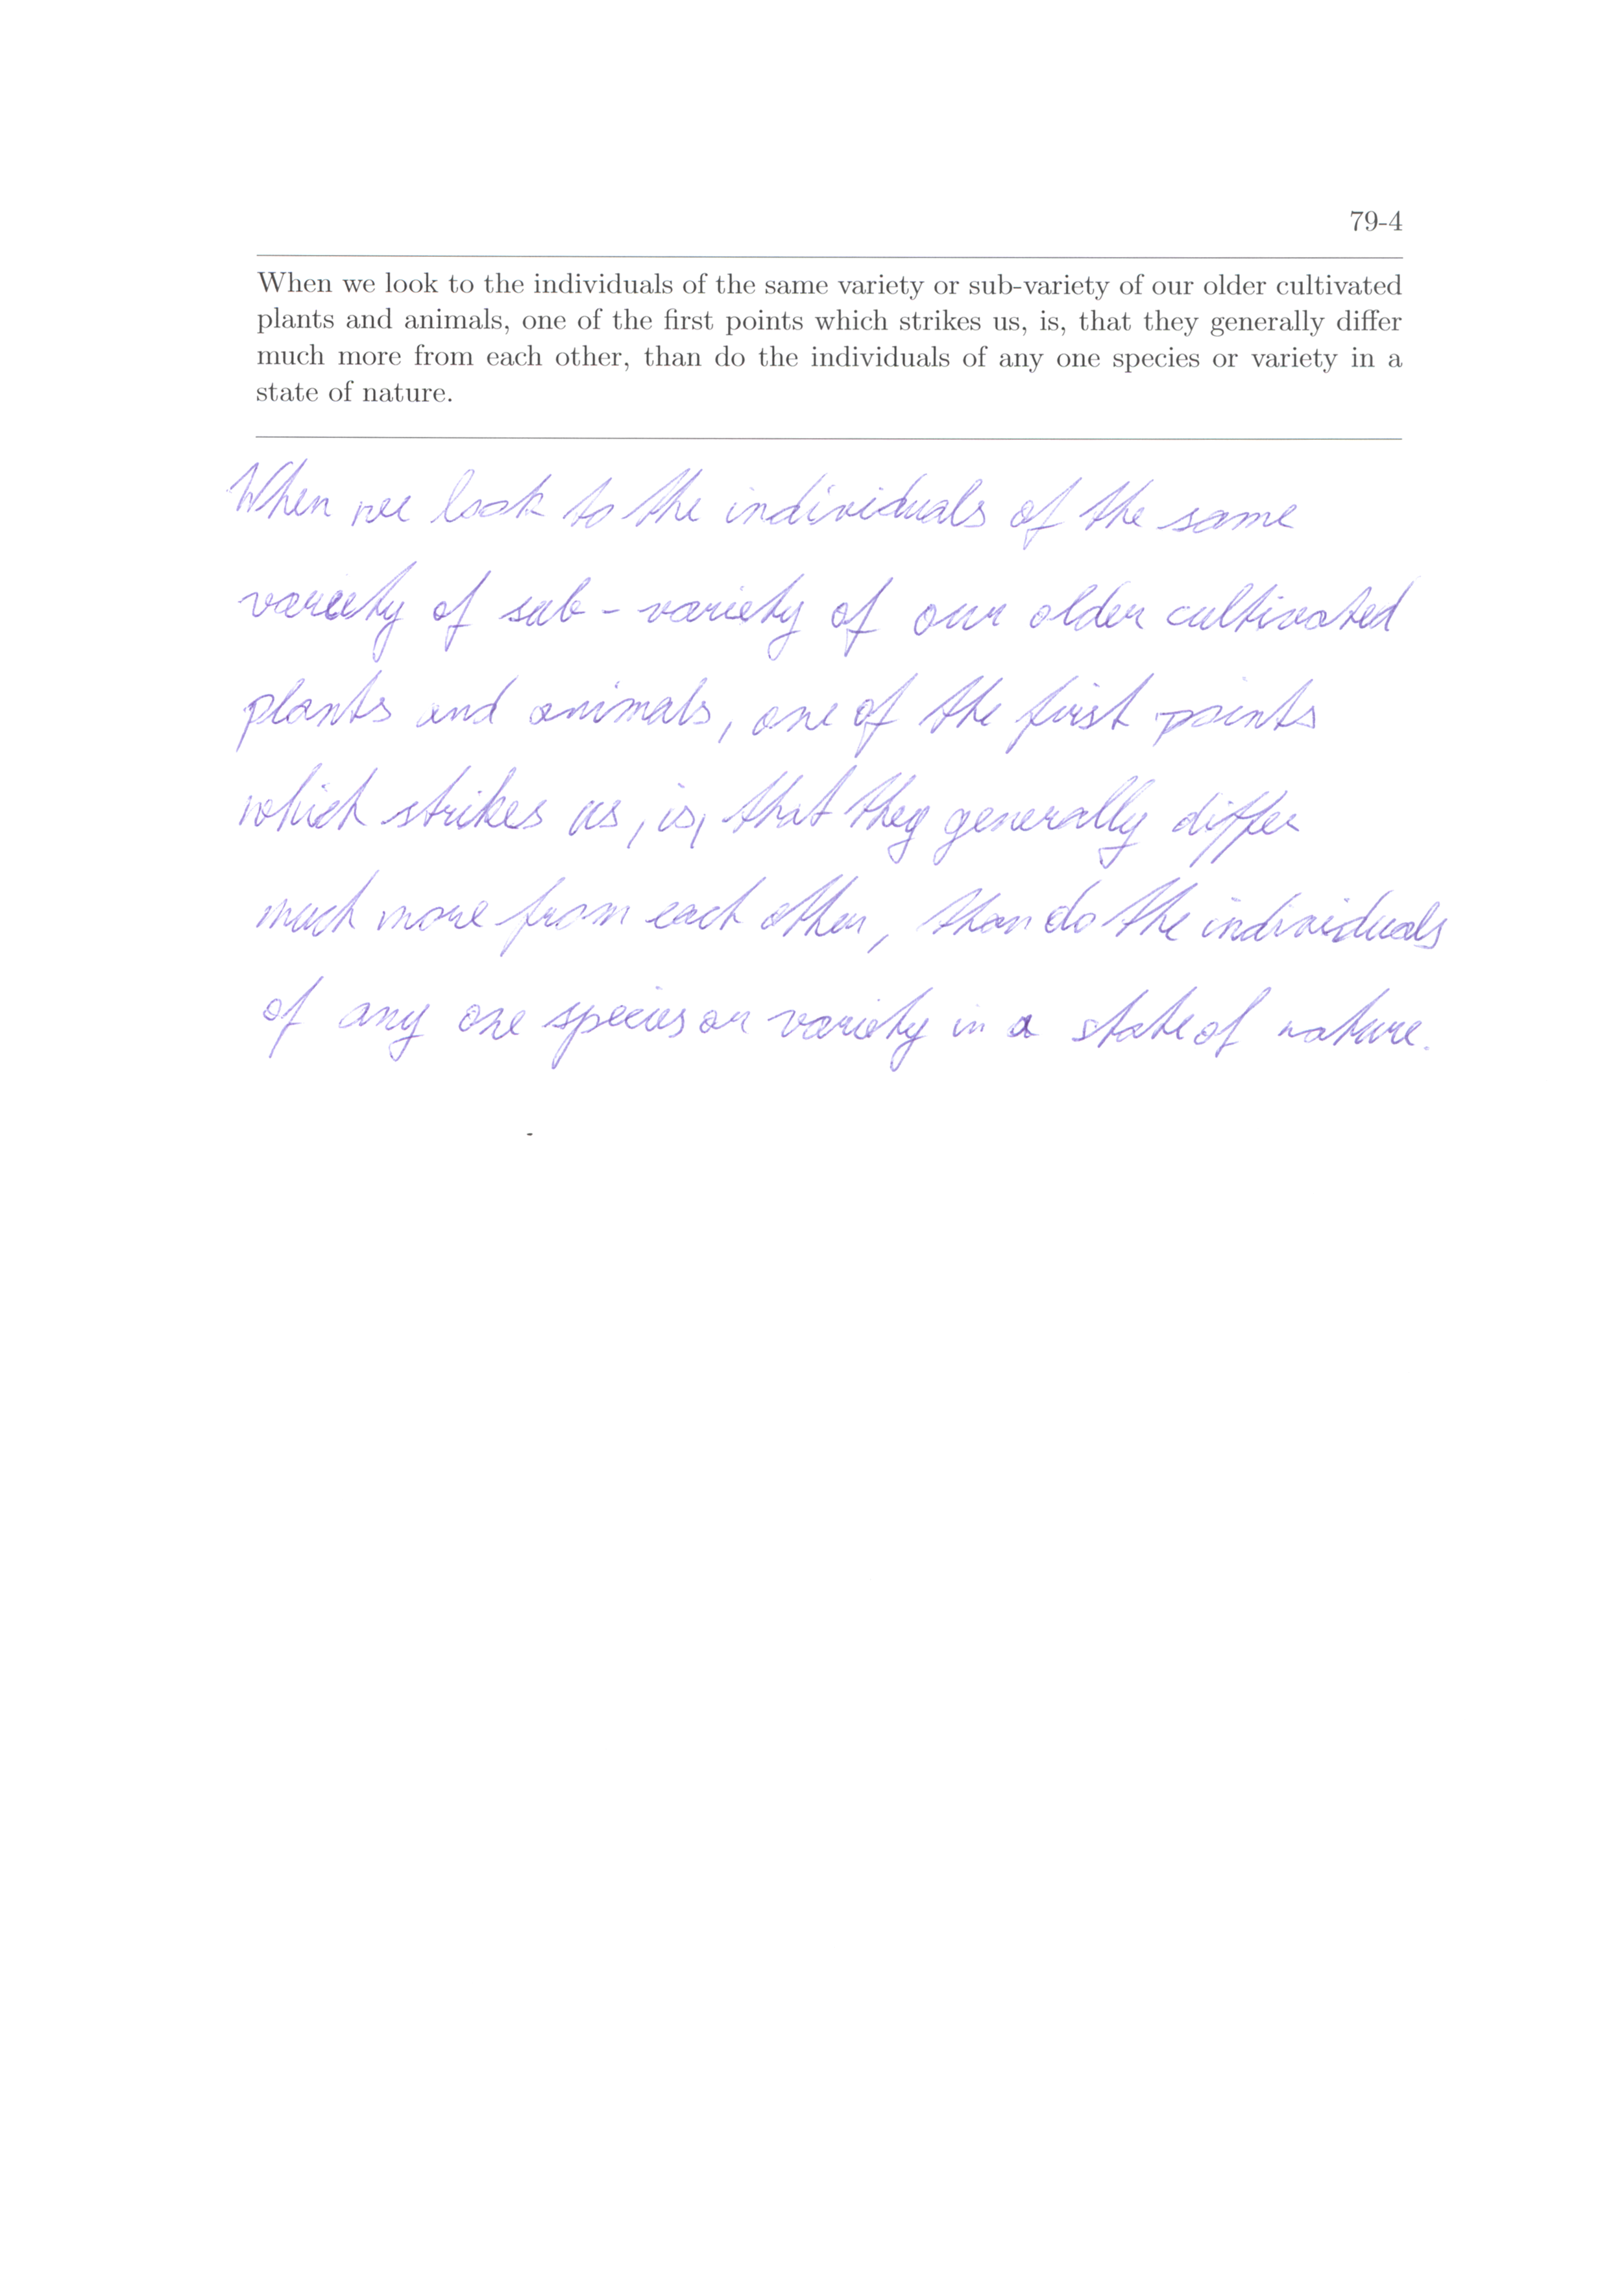 79-4
When we look to the individuals of the same variety or sub-variety of our older cultivated
plants and animals, one of the first points which strikes us, is, that they generally differ
much more from each other, than do the individuals of any one species or variety in a
state of nature.
When we look to the individuals of the same
variety of sub-variety of our older cultivated
plants and animals, one of the first points
which strikes us, is, that they generally differ
much more from each other, than do the individuals
of any one species or variety in a state of nature.